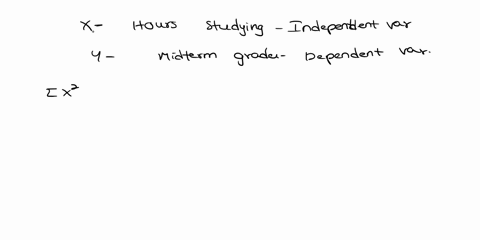 X - Hours Studying - Independent var
Y - Midterm grades - Dependent var.
Σx²